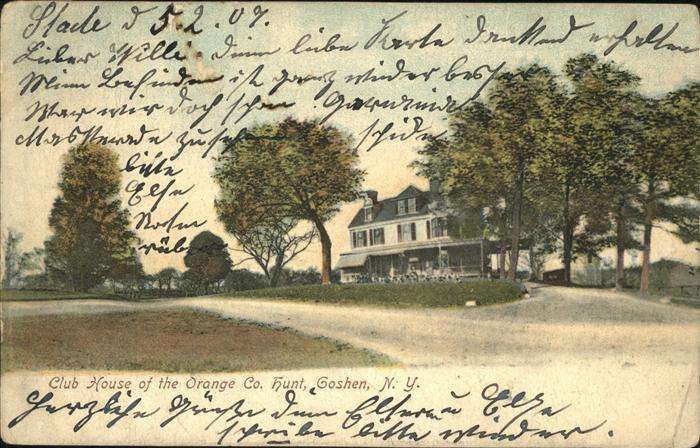 Stade d 5.2.07.
Lieber Willi. dein liebe Karte dankend erhalten
Mein Befinden ist ganz wieder besser
War wir doch schon
Maskerade zu
bitte
Else
Club House of the Orange Co. Hunt, Goshen, N. Y.
Herzliche Grüsse dein Eltern u Else
schreibe bitte wieder.